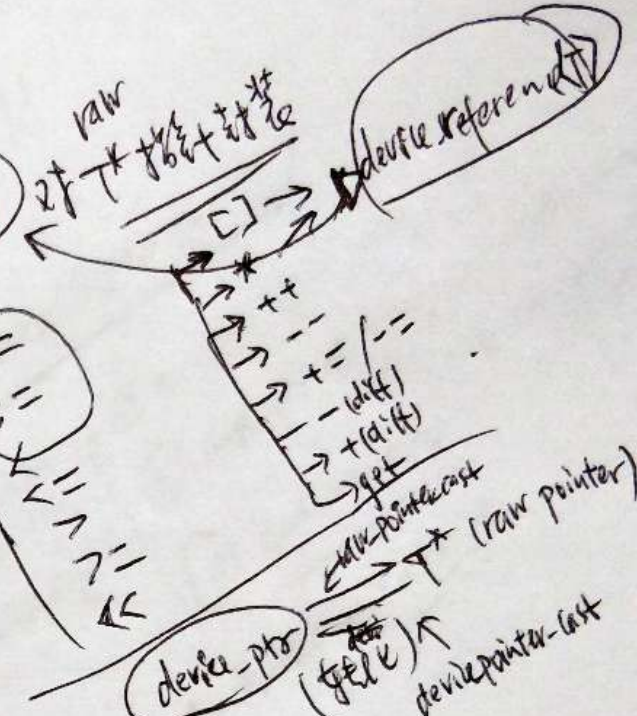 raw
对 T* 指针封装
device_reference<T>
[]
*
++
--
+= / -=
- (diff)
+ (diff)
get
=
=
<
<=
>
>=
<<
raw_pointer_cast
T* (raw pointer)
device_ptr
device_pointer_cast